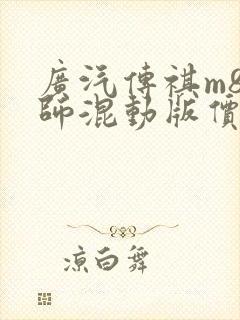 廣汽傳祺m8
師混動版價
涼白舞